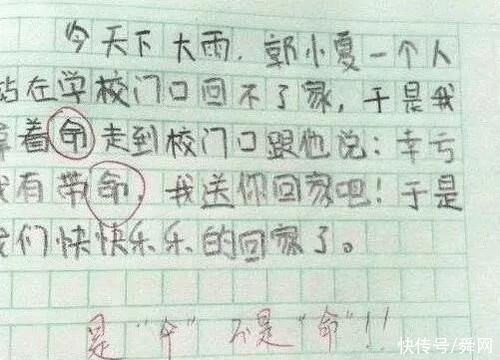 今天下大雨，郭小夏一个人
站在学校门口回不了家，于是我
拿着命走到校门口跟他说：幸亏
我有带命，我送你回家吧！于是
我们快快乐乐的回家了。
是"伞"不是"命"!!
快传号/舜网